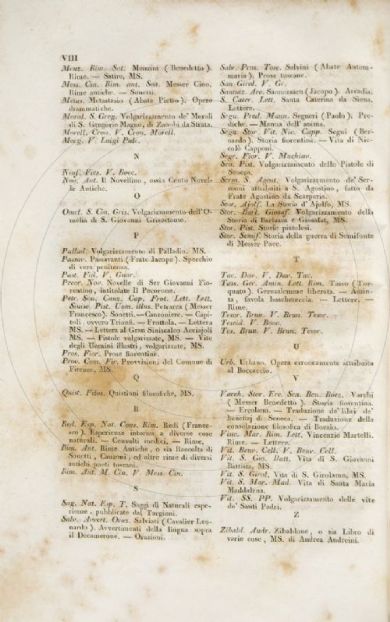 VIII
Menz. Rim. Sat. Menzini (Benedetto).
Rime. — Satire, MS.
Mess. Cin. Rim. ant. Son. Messer Cino,
Rime antiche. — Sonetti.
Metas. Metastasio (Abate Pietro). Opere
drammatiche.
Moral. S. Greg. Volgarizzamento de' Morali
di S. Gregorio Magno, di Zanobi da Strata.
Morell. Cron. V. Cron. Morell.
Morg. V. Luigi Pulc.
N
Ninf. Fies. V. Bocc.
Nov. Ant. Il Novellino, ossia Cento Novel-
le Antiche.
O
Omel. S. Gio. Gris. Volgarizzamento dell'O-
melia di S. Giovanni Grisostomo.
P
Pallad. Volgarizzamento di Palladio, MS.
Passav. Passavanti (Frate Jacopo). Specchio
di vera penitenza.
Past. Fid. V. Guar.
Pecor. Nov. Novelle di Ser Giovanni Fio-
rentino, intitolate Il Pecorone.
Petr. Son. Canz. Cap. Frot. Lett. Lett.
Sinisc. Pist. Uom. illus. Petrarca (Messer
Francesco). Sonetti. — Canzoniere. — Capi-
toli, ovvero Trionfi. — Frottola. — Lettera
MS. — Lettera al Gran Siniscalco Acciajoli
MS. — Pistole volgarizzate, MS. — Vite
degli Uomini illustri, volgarizzate, MS.
Pros. Fior. Prose fiorentine.
Prov. Com. Fir. Provvisioni del Comune di
Firenze, MS.
Q
Quist. Filos. Quistioni filosofiche, MS.
R
Red. Esp. Nat. Cons. Rim. Redi (France-
sco). Esperienze intorno a diverse cose
naturali. — Consulti medici. — Rime.
Rim. Ant. Rime Antiche, o sia Raccolta di
Sonetti, Canzoni, ed altre rime di diversi
antichi poeti toscani.
Rim. Ant. M. Cin. V. Mess. Cin.
Sag. Nat. Esp. T. Saggi di Naturali espe-
rienze, pubblicate dal Targioni.
Salv. Avvert. Oraz. Salviati (Cavalier Leo-
nardo). Avvertimenti della lingua sopra
il Decamerone. — Orazioni.
Salv. Pros. Tosc. Salvini (Abate Anton-
maria). Prose toscane.
San Girol. V. Gr.
Sannaz. Arc. Sannazzaro (Jacopo). Arcadia.
S. Cater. Lett. Santa Caterina da Siena.
Lettere.
Segn. Pred. Mann. Segneri (Paolo). Pre-
diche. — Manna dell'anima.
Segn. Stor. Vit. Nic. Capp. Segni (Ber-
nardo). Storia fiorentina. — Vita di Nic-
colò Capponi.
Segr. Fior. V. Machiav.
Sen. Pist. Volgarizzamento delle Pistole di
Seneca.
Serm. S. Agost. Volgarizzamento de' Ser-
moni attribuiti a S. Agostino, fatto da
Frate Agostino da Scarperia.
Stor. Ajolf. La Storia d'Ajolfo, MS.
Stor. Barl. Giosaf. Volgarizzamento della
Storia di Barlaam e Giosafat, MS.
Stor. Pist. Storie pistolesi.
Stor. Semif. Storia della guerra di Semifonte
di Messer Pace.
T
Tac. Dav. V. Dav. Tac.
Tass. Ger. Amin. Lett. Rim. Tasso (Tor-
quato). Gerusalemme liberata. — Amin-
ta, favola boschereccia. — Lettere. —
Rime.
Tesor. Brun. V. Brun. Tesor.
Teseid. V. Bocc.
Tes. Brun. V. Brun. Tesor.
U
Urb. Urbano. Opera erroneamente attribuita
al Boccaccio.
V
Varch. Stor. Erc. Sen. Ben. Boez. Varchi
(Messer Benedetto). Storia fiorentina.
— Ercolano. — Traduzione de' libri de'
benefizj di Seneca. — Traduzione della
consolazione filosofica di Boezio.
Vinc. Mar. Rim. Lett. Vincenzio Martelli.
Rime. — Lettere.
Vit. Benv. Cell. V. Benv. Cell.
Vit. S. Gio. Batt. Vita di S. Giovanni
Battista, MS.
Vit. S. Girol. Vita di S. Girolamo, MS.
Vit. S. Mar. Mad. Vita di Santa Maria
Maddalena.
Vit. SS. PP. Volgarizzamento delle vite
de' Santi Padri.
Z
Zibald. Andr. Zibaldone, o sia Libro di
varie cose, MS. di Andrea Andreini.